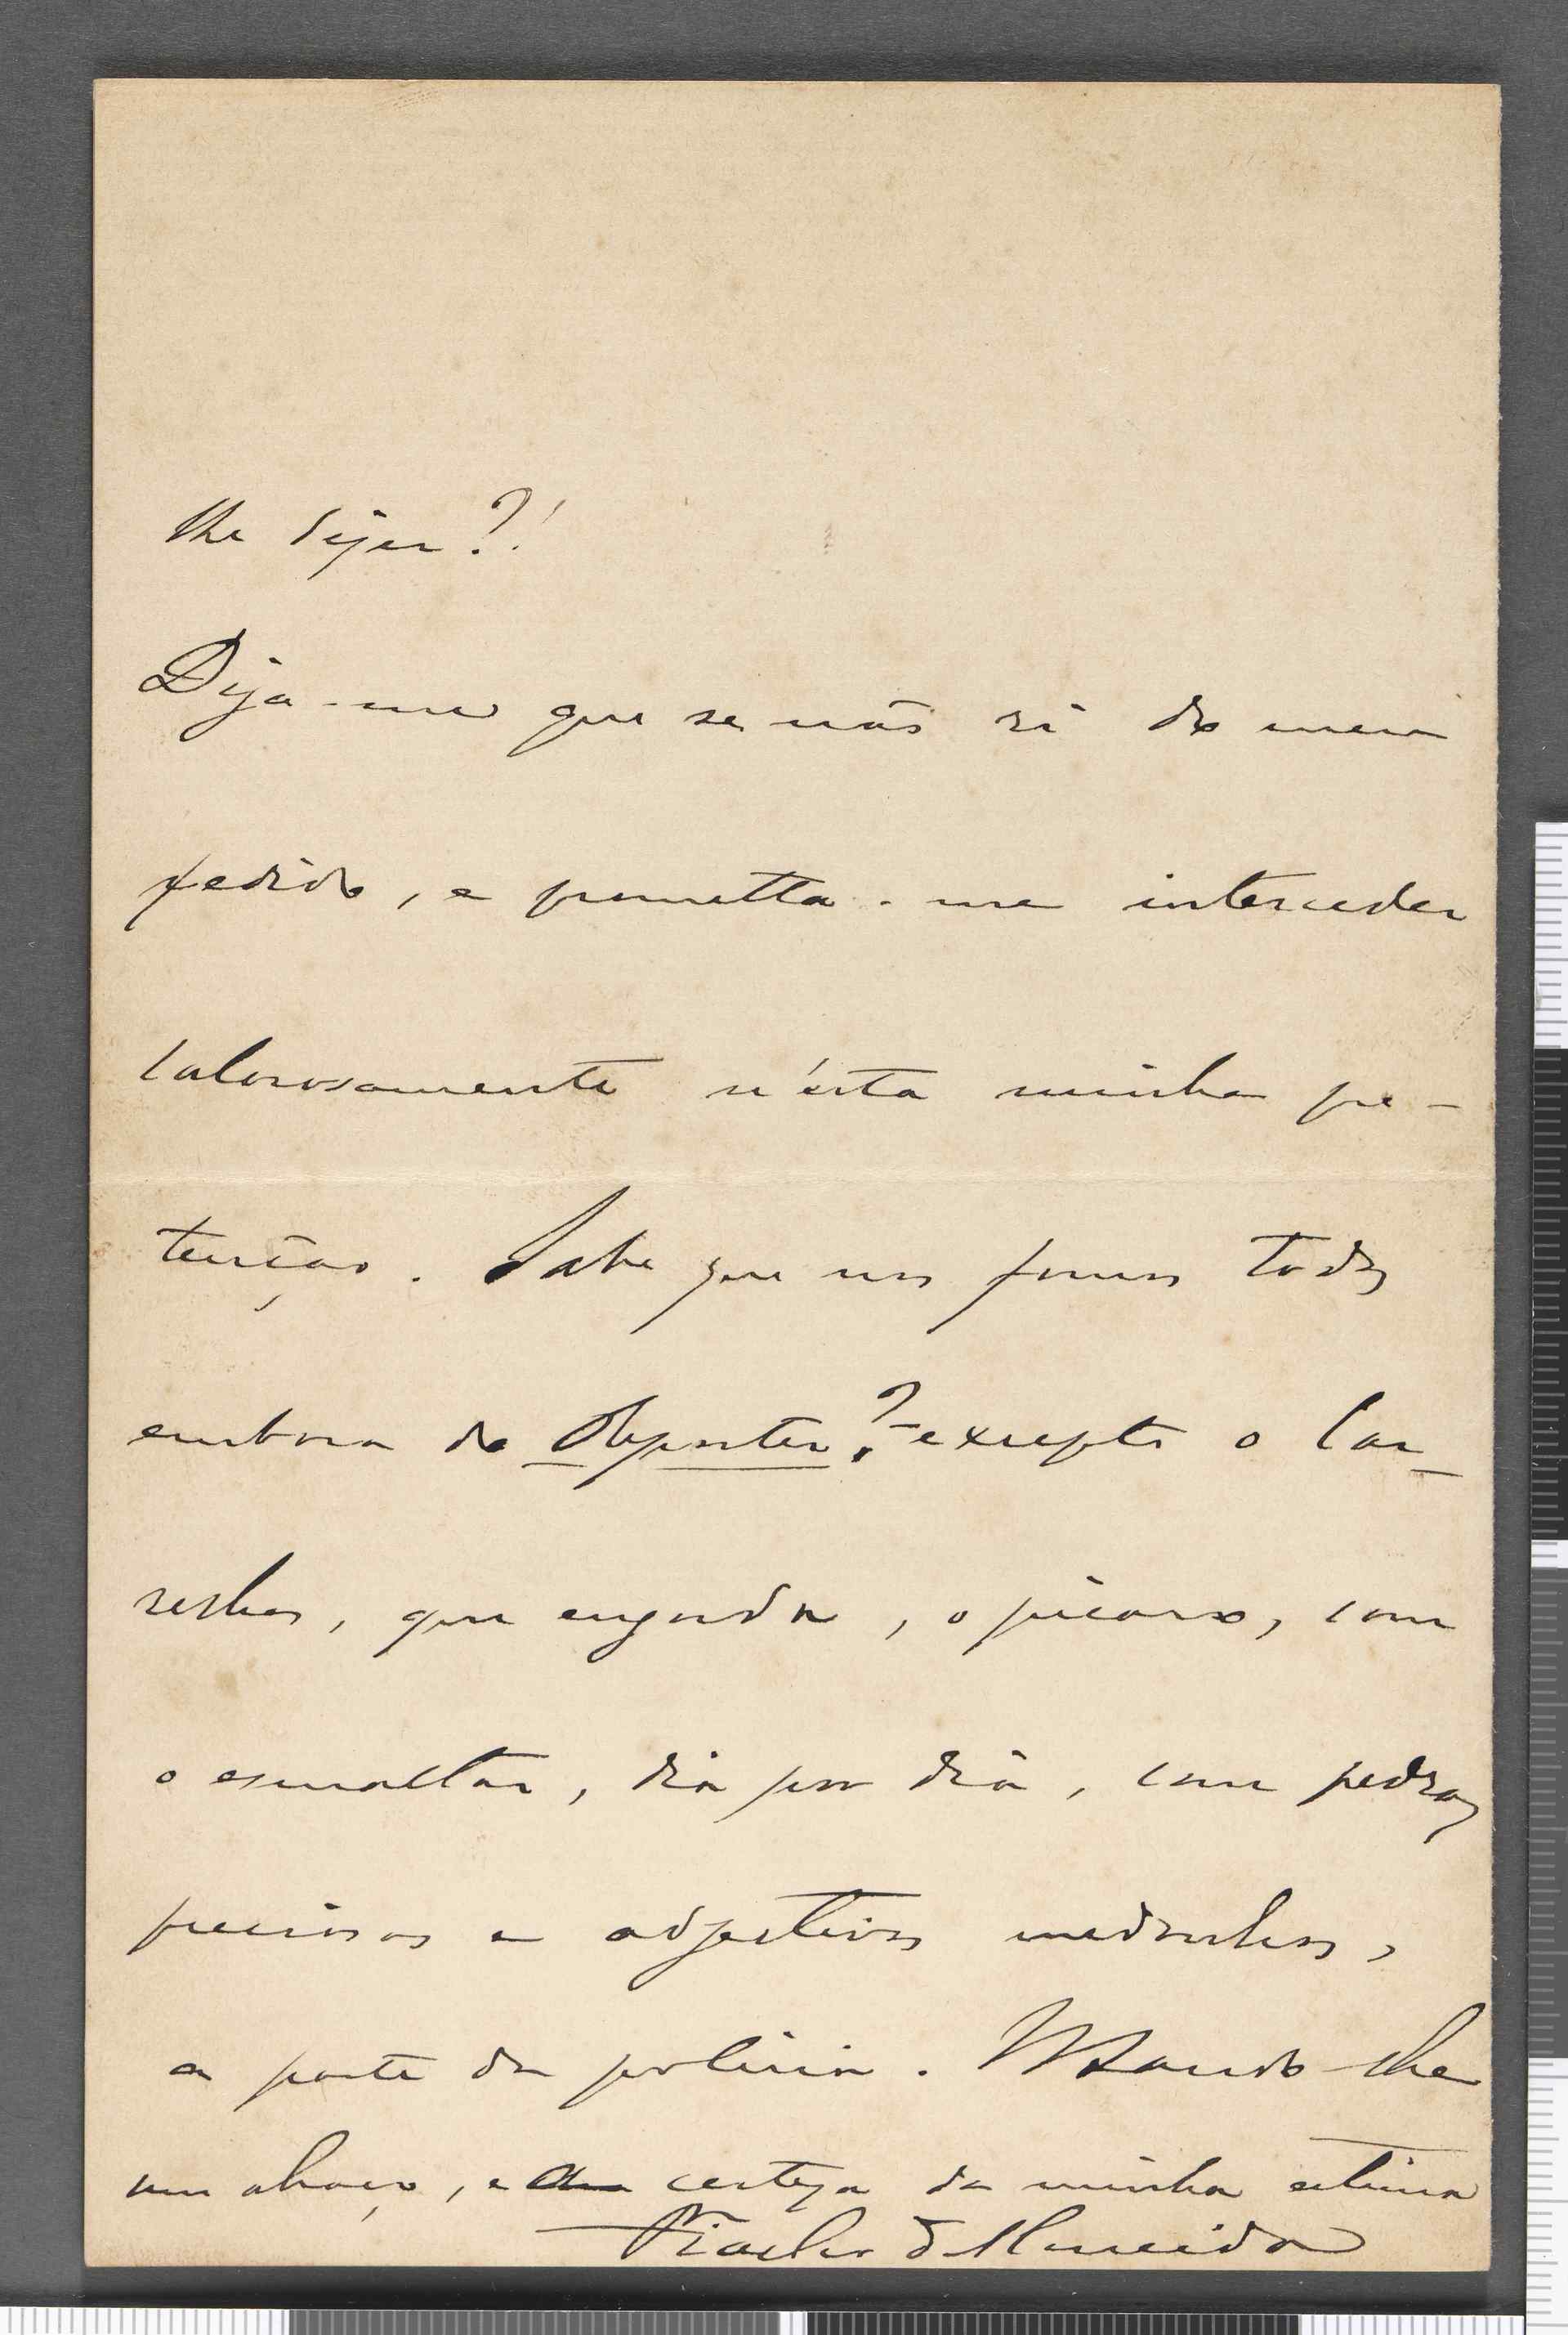 lhe dizer?!
Diga-me que se não ri do meu
pedido, e prometta-me interceder
calorosamente n'esta minha pre-
tenção. Sabe que nos fomos todos
embora do Reporter?-excepto o Car-
rilhos, que engorda, o picaro, com
o esmaltar, dia por dia, com pedras
preciosas e adjectivos medonhos,
a parte da policia. Mando-lhe
um abraço, e a certeza da minha estima
Fialho d'Almeida